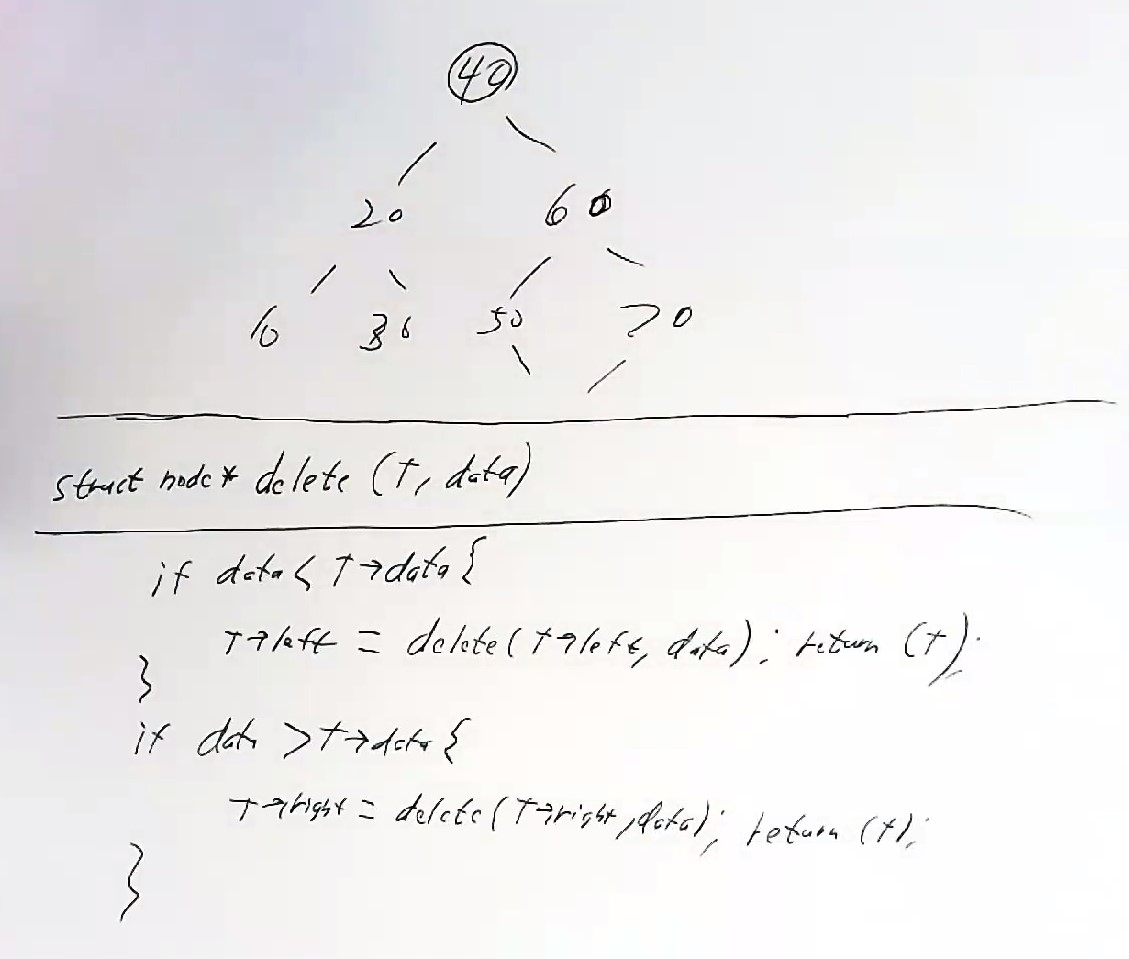 40
20 60
10 30 50 70
struct node* delete (T, data)
if data < T→data {
T→left = delete(T→left, data); return (T);
}
if data > T→data {
T→right = delete(T→right, data); return (T);
}